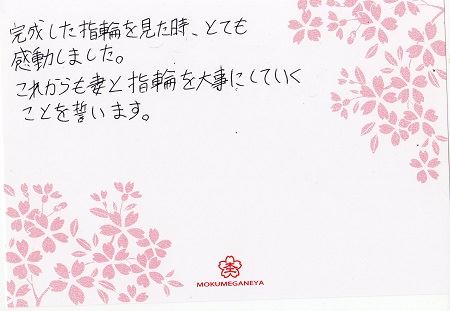 完成した指輪を見た時、とても
感動しました。
これからも妻と指輪を大事にしていく
ことを誓います。
杢
MOKUMEGANEYA